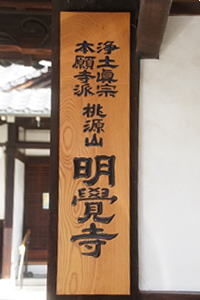 浄土眞宗
本願寺派
桃源山
明覺寺